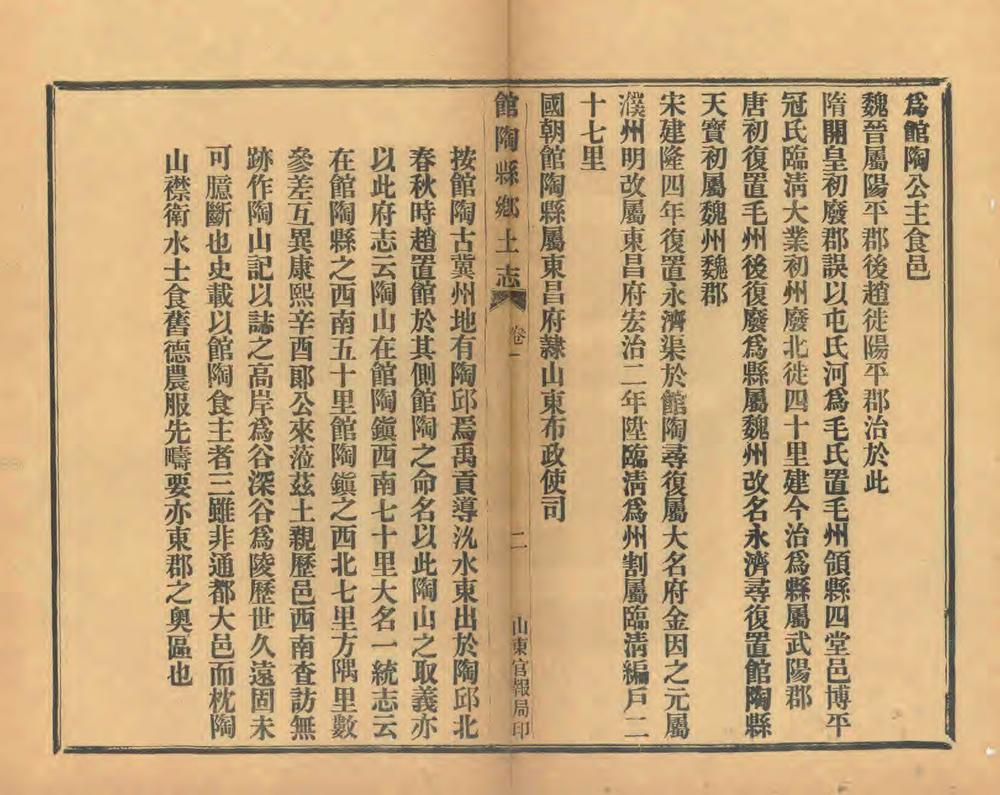 爲館陶公主食邑
魏晉屬陽平郡後趙徙陽平郡治於此
隋開皇初廢郡誤以屯氏河爲毛氏置毛州領縣四堂邑博平
冠氏臨淸大業初州廢北徙四十里建今治爲縣屬武陽郡
唐初復置毛州後復廢爲縣屬魏州改名永濟尋復置館陶縣
天寶初屬魏州魏郡
宋建隆四年復置永濟渠於館陶尋復屬大名府金因之元屬
濮州明改屬東昌府宏治二年陞臨淸爲州割屬臨淸編戶二
十七里
國朝館陶縣屬東昌府隸山東布政使司
館陶縣鄉土志 卷一 二 山東官報局印
按館陶古冀州地有陶邱焉禹貢導沇水東出於陶邱北
春秋時趙置館於其側館陶之命名以此陶山之取義亦
以此府志云陶山在館陶鎭西南七十里大名一統志云
在館陶縣之西南五十里館陶鎭之西北七里方隅里數
參差互異康熙辛酉郞公來蒞茲土親歷邑西南查訪無
跡作陶山記以誌之高岸爲谷深谷爲陵歷世久遠固未
可臆斷也史載以館陶食主者三雖非通都大邑而枕陶
山襟衛水士食舊德農服先疇要亦東郡之奧區也